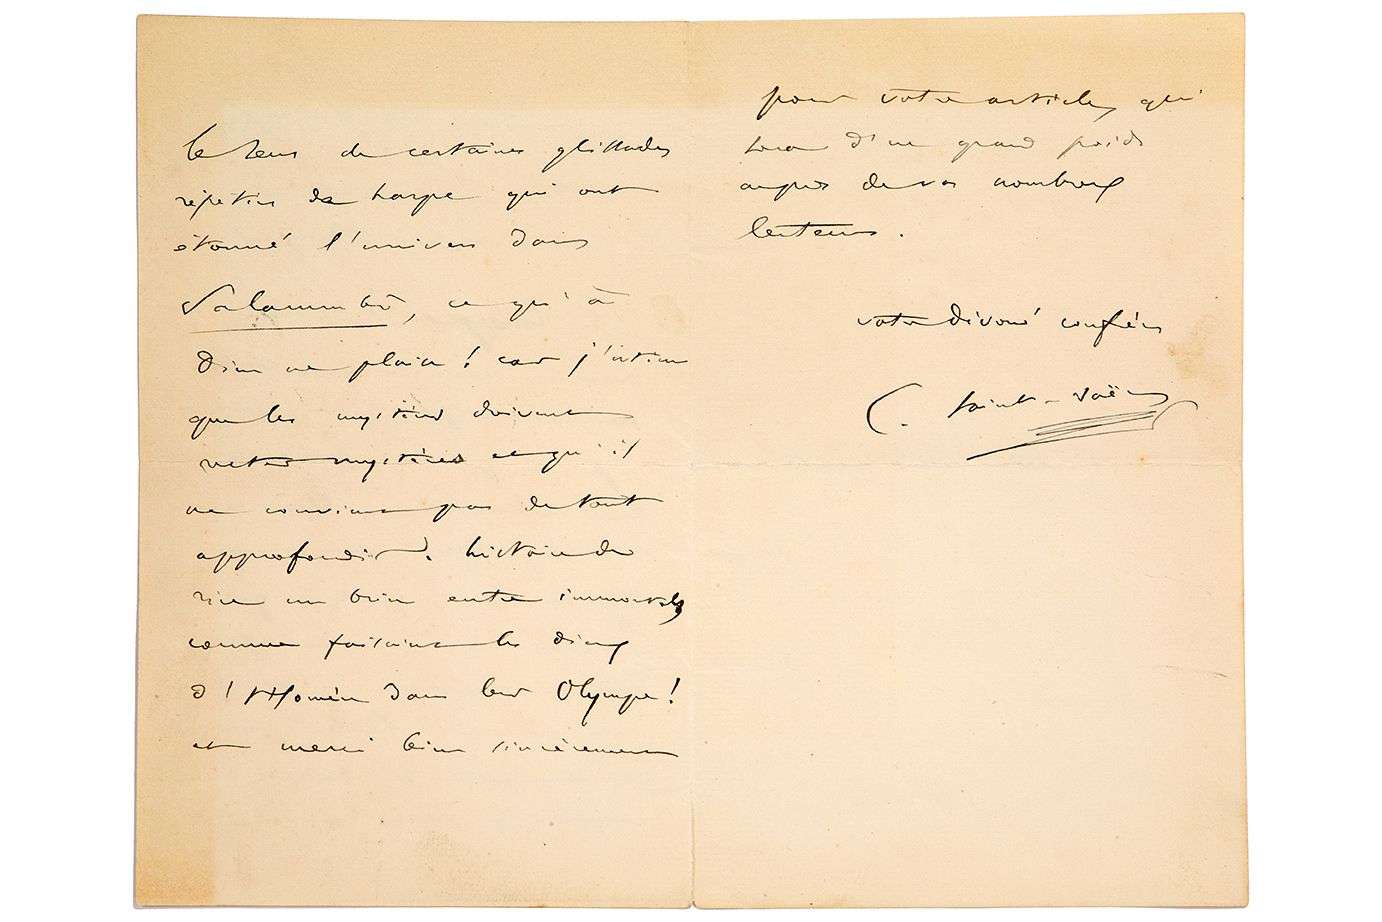 le sens de certaines glissades
répétées de harpe qui ont
étonné l'univers dans
Salammbô, ce qu'à
Dieu ne plaise ! car j'estime
que les mystères doivent
rester mystères et qu'il
ne convient pas de tout
approfondir. histoire de
rire un brin entre immortels,
comme faisaient les dieux
d'Homère dans leur Olympe !
et merci bien sincèrement
pour votre article, qui
sera d'un grand poids
auprès de vos nombreux
lecteurs.
votre dévoué confrère
C. Saint-Saëns